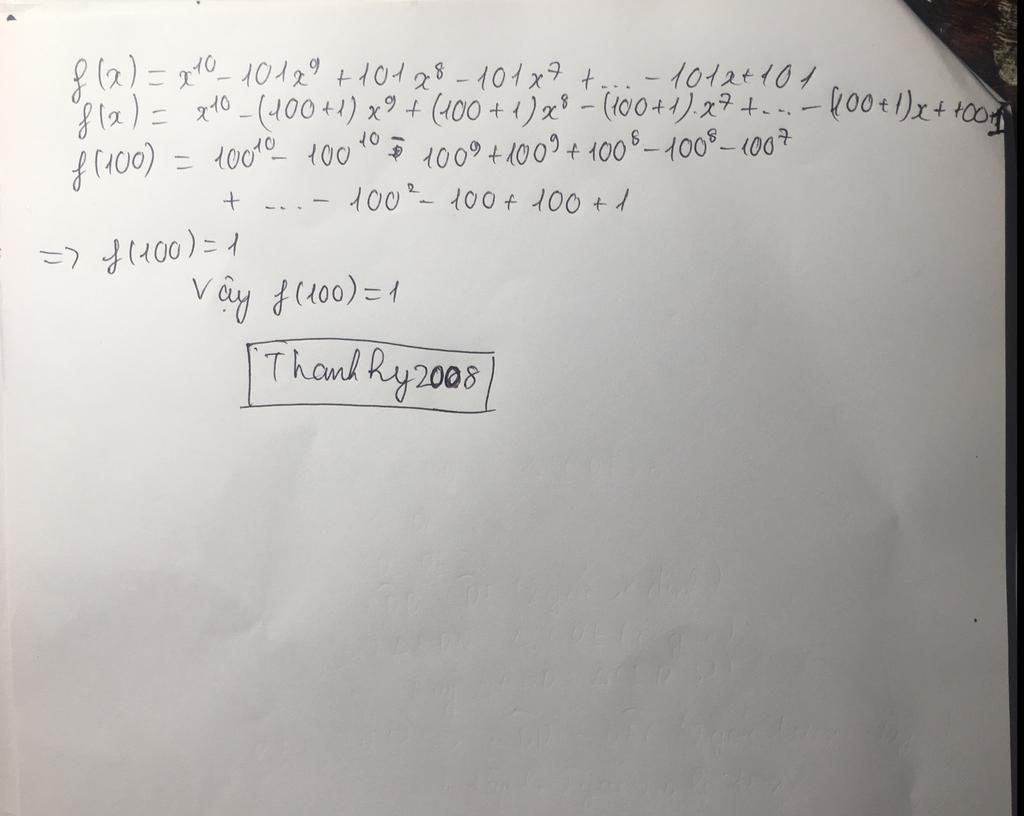 f(x) = x¹⁰ - 101x⁹ + 101x⁸ - 101x⁷ + ... - 101x + 101
f(x) = x¹⁰ - (100+1)x⁹ + (100+1)x⁸ - (100+1).x⁷ + ... - (100+1)x + 100+1
f(100) = 100¹⁰ - 100¹⁰ - 100⁹ + 100⁹ + 100⁸ - 100⁸ - 100⁷
+ ... - 100² - 100 + 100 + 1
=> f(100) = 1
Vậy f(100) = 1
Thanhhy2008